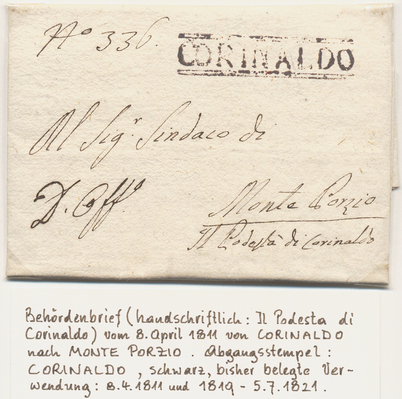 N.o 336.
CORINALDO
Al Sig.r Sindaco di
D. Off.o
Monte Porzio
Il Podestà di Corinaldo
Behördenbrief (handschriftlich: Il Podesta di
Corinaldo) vom 8. April 1811 von CORINALDO
nach MONTE PORZIO. Abgangsstempel:
CORINALDO, schwarz, bisher belegte Ver-
wendung: 8.4.1811 und 1819 - 5.7.1821.